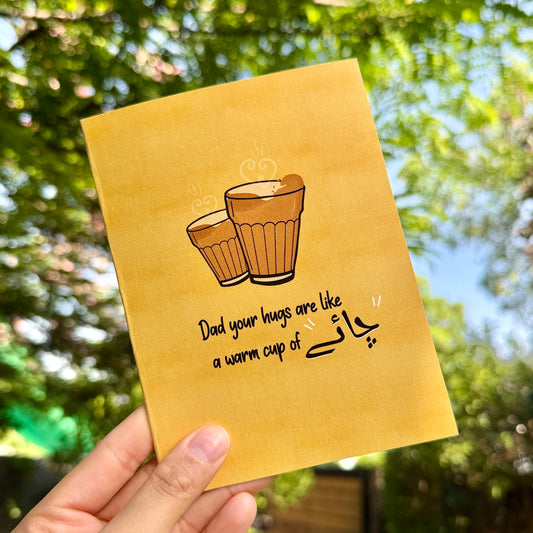 Dad your hugs are like
a warm cup of چائے